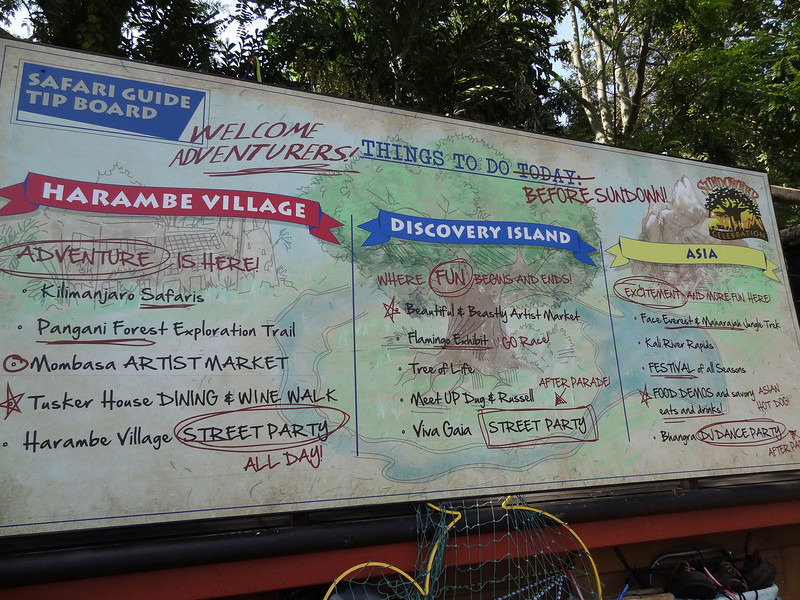 SAFARI GUIDE
TIP BOARD
WELCOME
ADVENTURERS!
THINGS TO DO TODAY:
BEFORE SUNDOWN!
CELEBRATION
HARAMBE VILLAGE
ADVENTURE IS HERE!
• Kilimanjaro Safaris
• Pangani Forest Exploration Trail
Mombasa ARTIST MARKET
Tusker House DINING & WINE WALK
• Harambe Village STREET PARTY
ALL DAY!
DISCOVERY ISLAND
WHERE FUN BEGINS AND ENDS!
Beautiful & Beastly Artist Market
• Flamingo Exhibit "GO Race!
• Tree of Life
AFTER PARADE!
• Meet UP Dug & Russell
• Viva Gaia STREET PARTY
ASIA
EXCITEMENT AND MORE FUN HERE!
• Face Everest & Maharajah Jungle Trek
• Kali River Rapids
• FESTIVAL of all Seasons
FOOD DEMOS and savory
eats and drinks!
ASIAN
HOT DOG!
• Bhangra DJ DANCE PARTY
AFTER